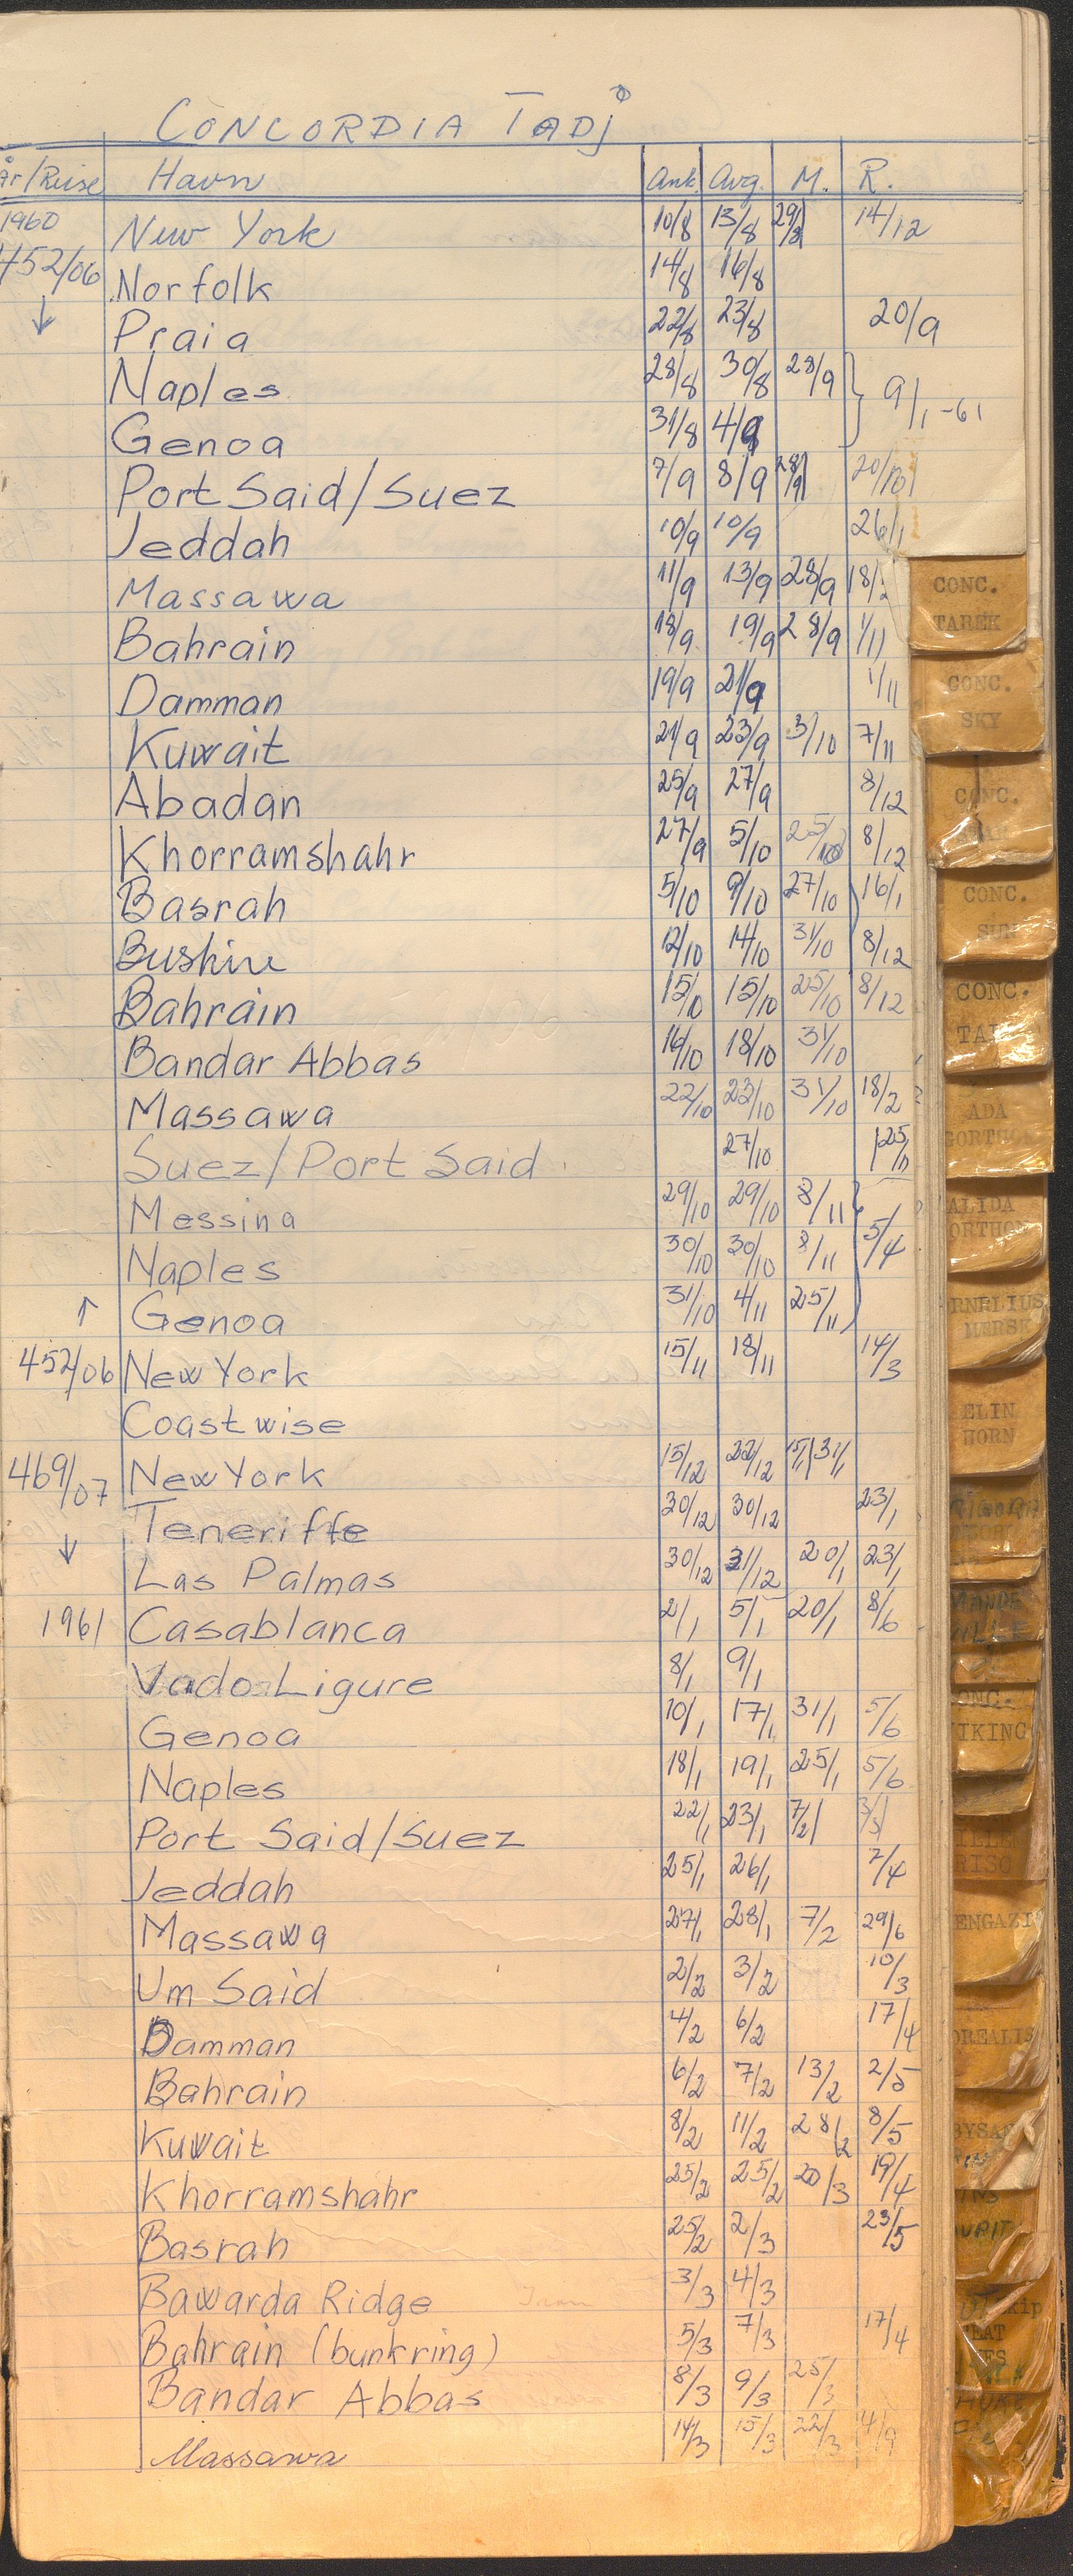 CONCORDIA TADJ
År/Reise Havn Ank. Avg. M. R.
1960 New York 10/8 13/8 29/8 14/12
452/06 Norfolk 14/8 16/8
↓ Praia 22/8 23/8 20/9
Naples 28/8 30/8 28/9 } 9/1-61
Genoa 31/8 4/9
Port Said/Suez 7/9 8/9 28/9 20/10
Jeddah 10/9 10/9 26/1
Massawa 11/9 13/9 28/9 18/
Bahrain 18/9 19/9 28/9 1/11
Damman 19/9 21/9 1/11
Kuwait 21/9 23/9 3/10 7/11
Abadan 25/9 27/9 8/12
Khorramshahr 27/9 5/10 25/10 8/12
Basrah 5/10 9/10 27/10 16/1
Bushire 12/10 14/10 31/10 8/12
Bahrain 15/10 15/10 25/10 8/12
Bandar Abbas 16/10 18/10 31/10
Massawa 22/10 23/10 31/10 18/2
Suez/Port Said 27/10 25/11
Messina 29/10 29/10 8/11 5/4
Naples 30/10 30/10 8/11
↑ Genoa 31/10 4/11 25/11
452/06 New York 15/11 18/11 14/3
Coastwise
469/07 New York 15/12 22/12 15/1 31/1
Teneriffe 30/12 30/12 23/1
↓ Las Palmas 30/12 31/12 20/1 23/1
1961 Casablanca 2/1 5/1 20/1 8/6
Vado Ligure 8/1 9/1
Genoa 10/1 17/1 31/1 5/6
Naples 18/1 19/1 25/1 5/6
Port Said/Suez 22/1 23/1 7/2 3/3
Jeddah 25/1 26/1 7/4
Massawa 27/1 28/1 7/2 29/6
Um Said 2/2 3/2 10/3
Damman 4/2 6/2 17/4
Bahrain 6/2 7/2 13/2 2/5
Kuwait 8/2 11/2 28/2 8/5
Khorramshahr 25/2 25/2 20/3 19/4
Basrah 25/2 2/3 23/5
Bawarda Ridge 3/3 4/3
Bahrain (bunkring) 5/3 7/3 17/4
Bandar Abbas 8/3 9/3 25/3
Massawa 14/3 15/3 22/3 4/9
CONC.
TAREK
CONC.
SKY
CONC.
CONC.
SUN
CONC.
TA
ADA
GORTHO
ALIDA
ORTHO
RNELIUS
MERSK
ELIN
HORN
ANDE
VILLE
ONC.
IKING
ILLE
RISO
ENGAZI
OREALIS